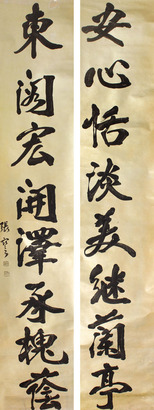 安心恬淡美继蘭亭
東阁宏開澤承槐蔭